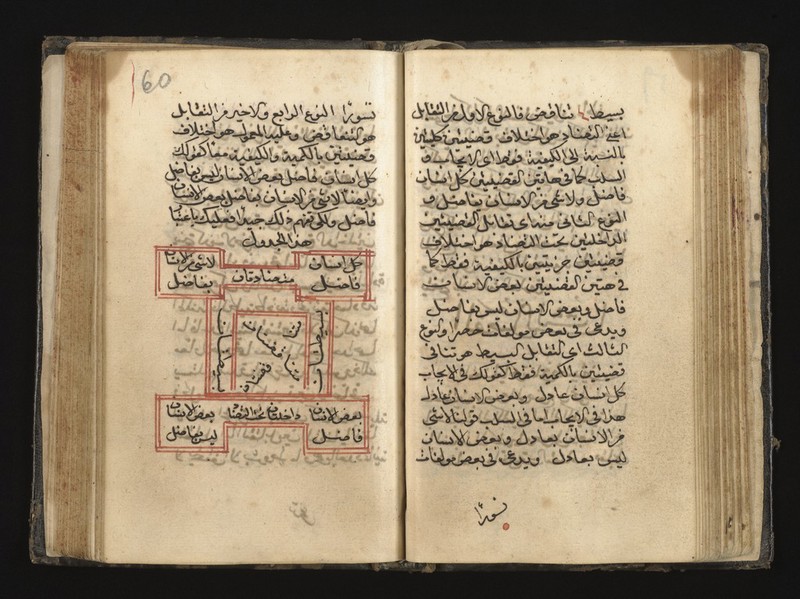 بسيط ٤ تناقض فالنوع الاول من التقابل
اعني التضاد هو اختلاف قضيتين كليتين
بالنسبة الى الكيفية فقط اي الايجاب و
السلب كما في هاتين القضيتين كل انسان
فاضل ولا شي من الانسان بفاضل و
النوع الثاني منه اي تقابل القضيتين
الداخلتين تحت التضاد هو اختلاف
قضيتين جزيتين بالكيفية فقط كما
في هتين القضيتين بعض الانسان
فاضل وبعض الانسان ليس بفاضل
ويدعى في بعض مولفات حصرا والنوع
الثالث اي التقابل البسيط هو تنافي
قضيتين بالكمية فقط كقولك في الايجاب
كل انسان عادل وبعض الانسان عادل
هذا في الايجاب اما في السلب قولنا لا شي
من الانسان بعادل وبعض الانسان
ليس بعادل ويدعى في بعض مولفات
تسورا
60
تسورا النوع الرابع والاخير من التقابل
هو التناقض وعليه المعول هو اختلاف
قضيتين بالكمية والكيفية معا كقولك
كل انسان فاضل بعض الانسان ليس بفاضل
وايضا لا شي من الانسان بفاضل بعض الانسان
فاضل ولكي تفهم ذلك جيدا فعليك باعتبار
هذا الجدول
كل انسان فاضل
متضادتان
لا شي من الانسان بفاضل
بسيطتان
متناقضتان
بسيطتان
بعض الانسان فاضل
داخلتان تحت التضاد
بعض الانسان ليس بفاضل